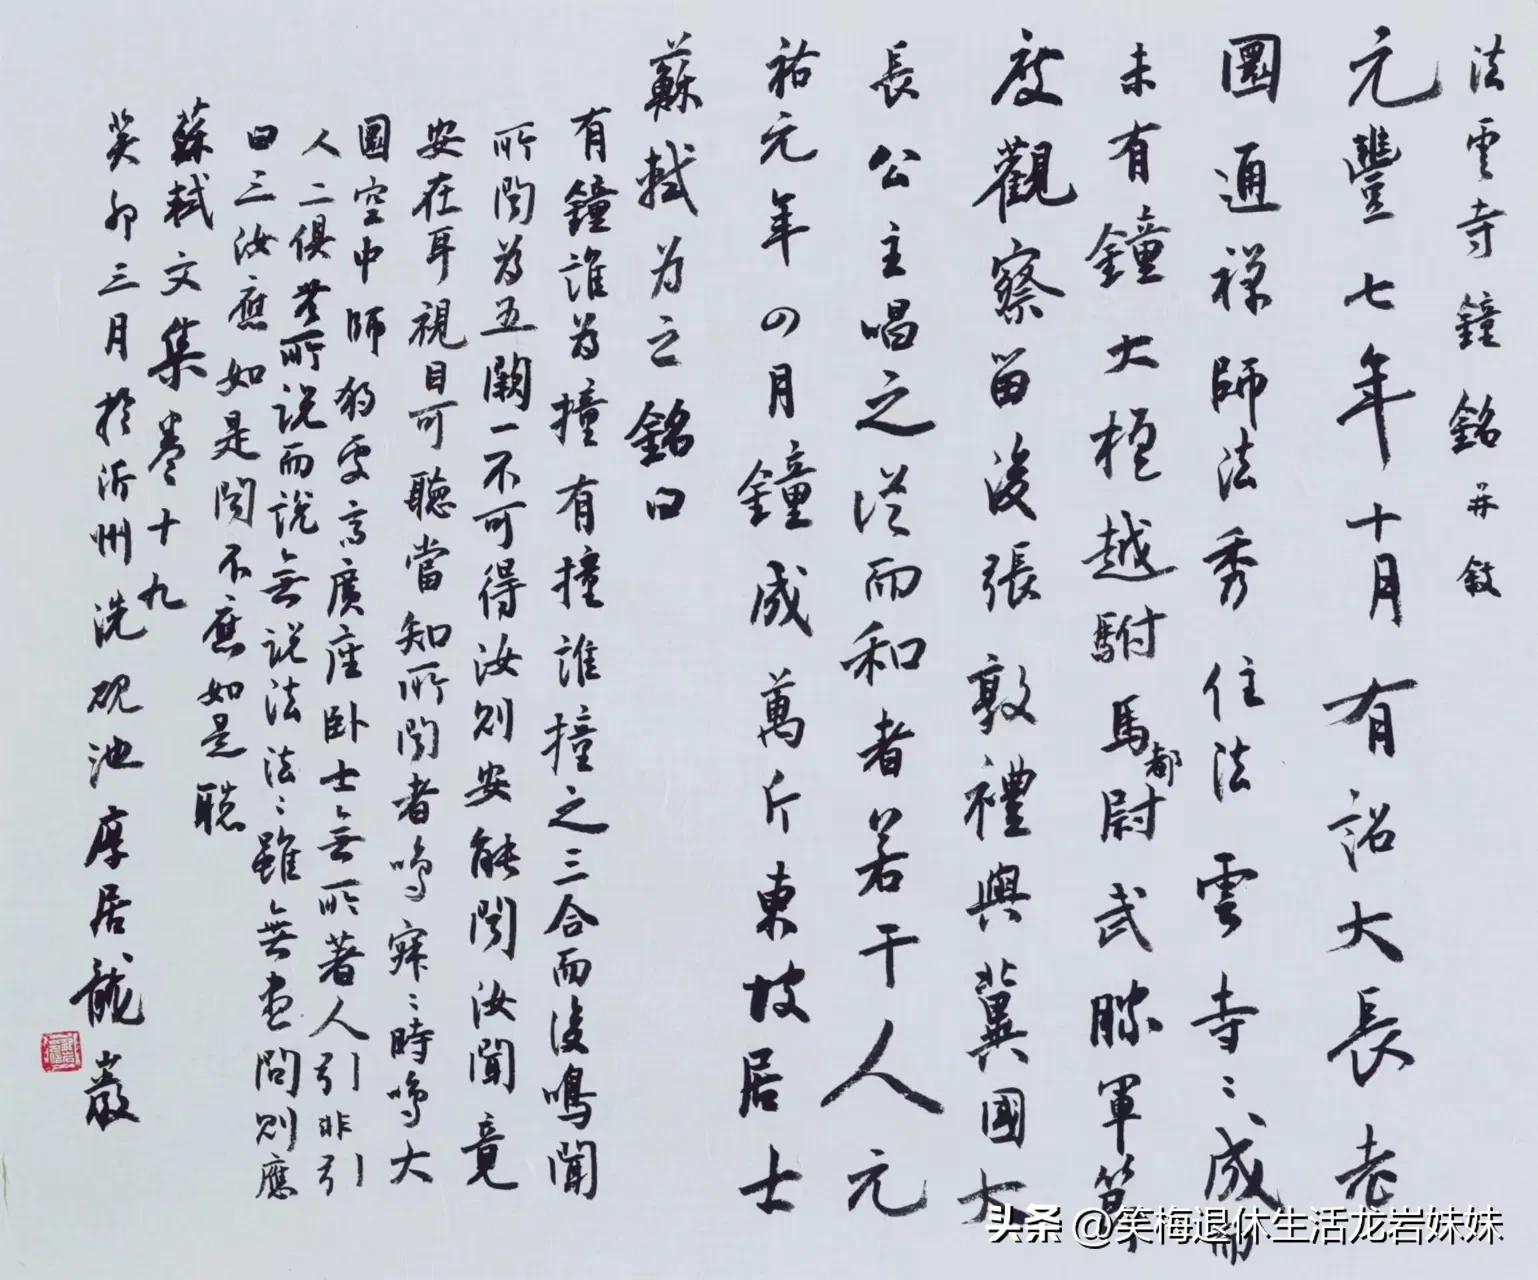 法雲寺鐘銘并敘
元豐七年十月有詔大長老
圓通禪師法秀住法雲寺〻成而
未有鐘大檀越駙馬都尉武勝軍節
度觀察留後張敦禮與冀國大
長公主唱之從而和者若干人元
祐元年四月鐘成萬斤東坡居士
蘇軾为之銘曰
有鐘誰為撞有撞誰撞之三合而後鳴聞
所聞為五闕一不可得汝則安能聞汝聞竟
安在耳視目可聽當知所聞者鳴寂〻時鳴大
圓空中師獨處高廣座卧士無所著人引非引
人二俱無所说而說無说法法〻雖無盡問則應
曰三汝應如是聞不應如是聽
蘇軾文集卷十九
癸卯三月於沂州洗硯池厚居龍巖
头条 @笑梅退休生活龙岩妹妹